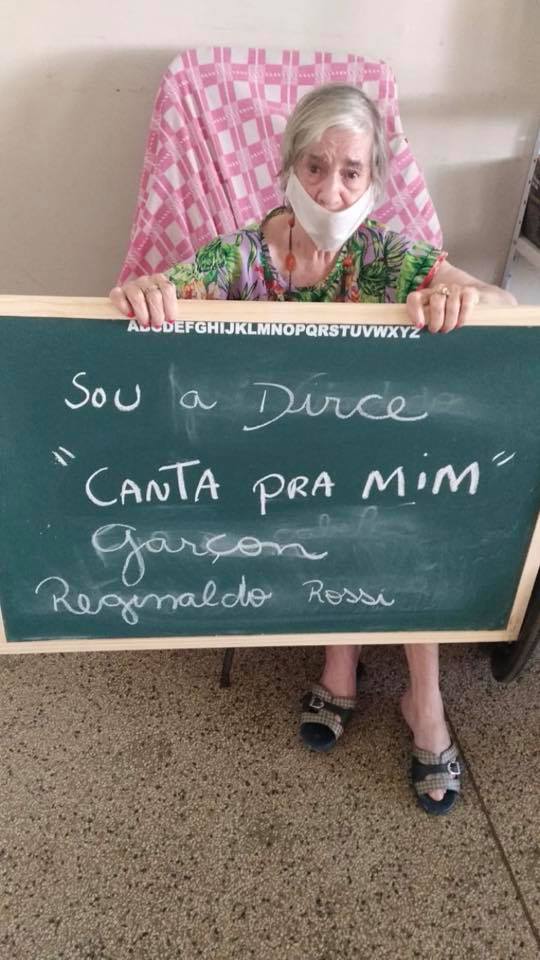 ABCDEFGHIJKLMNOPQRSTUVWXYZ
Sou a Dirce
"CANTA PRA MiM"
Garçon
Reginaldo Rossi